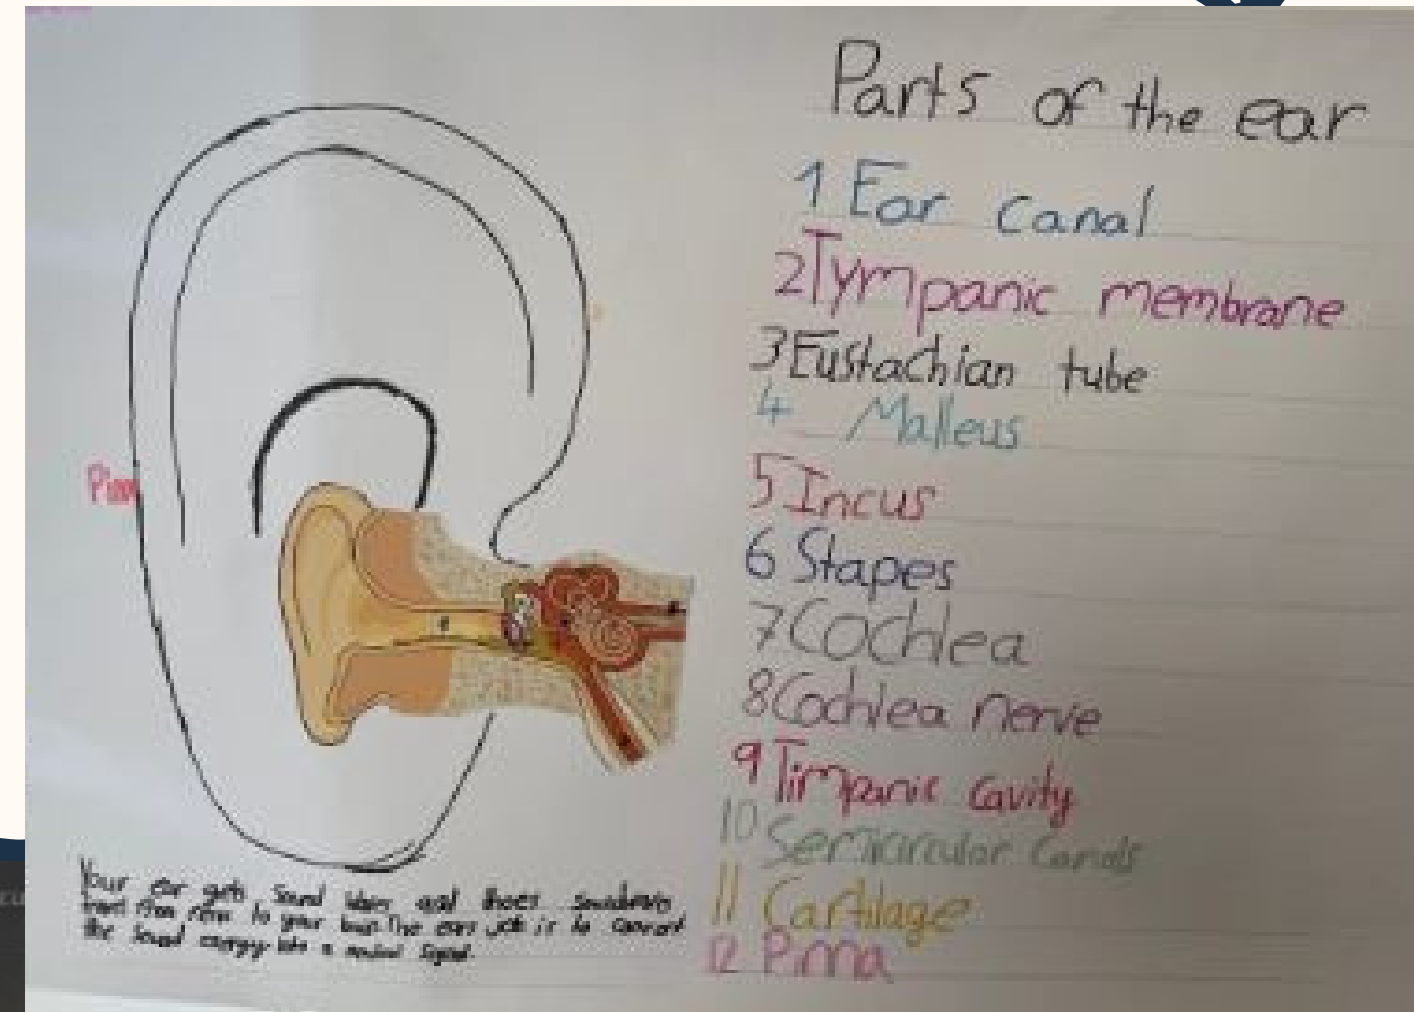 Parts of the ear
1 Ear canal
2 Tympanic membrane
3 Eustachian tube
4 Malleus
5 Incus
6 Stapes
7 Cochlea
8 Cochlea nerve
9 Timpanic cavity
10 Semicircular Canals
11 Cartilage
12 Pinna
Your ear gets Sound waves and
travel from to your The ears job is to convert
the Sound energy into a Signal.